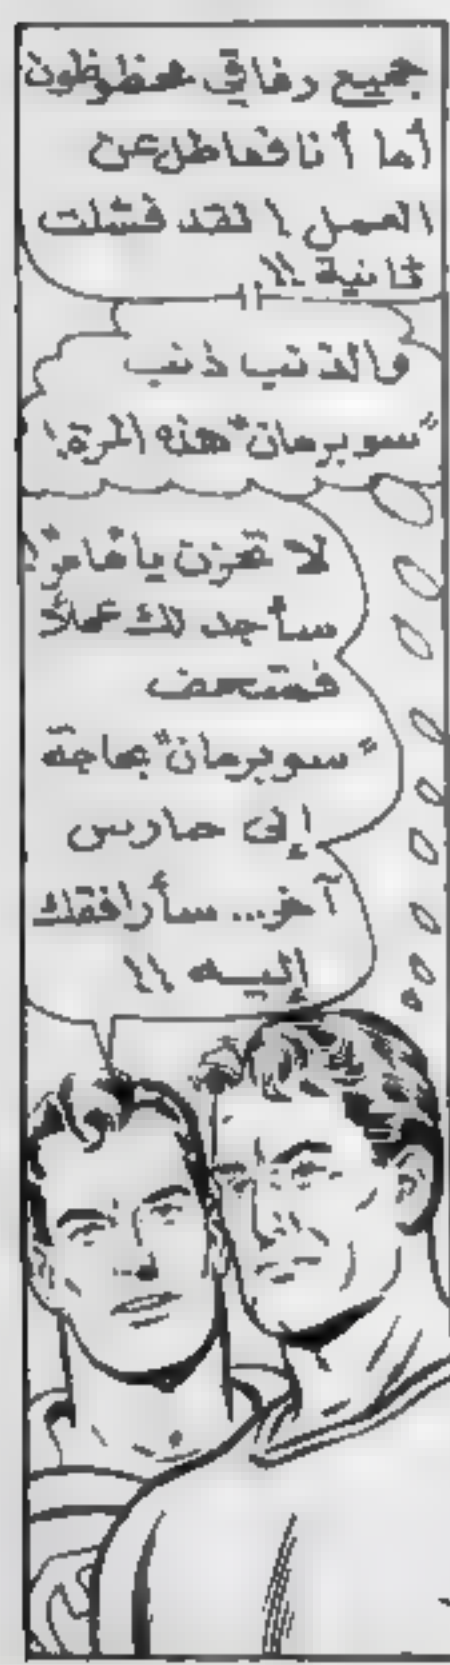 جميع رفاقي محظوظون
أما أنا فعاطل عن
العمل ! لقد فشلت
ثانية !!.
والذنب ذنب
"سوبرمان" هذه المرة !
لا تحزن يا
سأجد لك عملاً
فمتحف
"سوبرمان" بحاجة
إلى حارس
آخر... سأرافقك
إليه !!